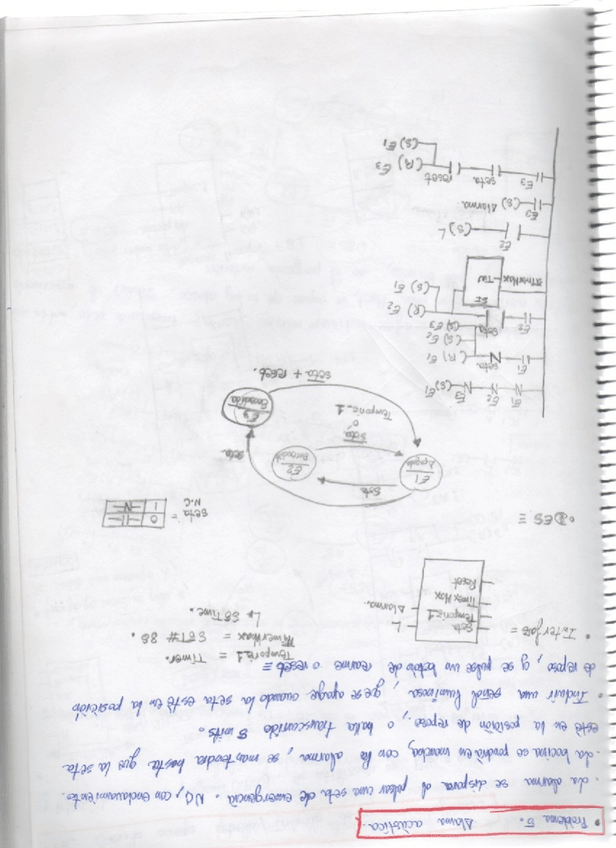 • Problema 5. Alarma acústica.
· La alarma se dispara al pulsar una seta de emergencia. NC, con enclavamiento.
· La bocina se pondrá en marcha, con la alarma, se mantendrá hasta que la seta
esté en la posición de reposo, o halla transcurrido 8 mits.
· Incluir una señal luminosa, qe se apague cuando la seta esté en la posición
de reposo, y se pulse un botón de rearme o reset ≡
• Interfase =
Seta
Temporiz_1
Timer Max
Reset
L
Alarma.
Temporiz_1 = Timer.
TimerMax = S5T# 8S.
L▸ S5Time.
• DES ≡
seta = N.C
0 ⊣⊢
1 ⊣N⊢
E1
Apagada
Seta
E2
E3
seta
seta
o
Temporiz_1
seta + reset.
E1 E2 E3 (S) E1
E1 seta (R) E1
(S) E2
(S) E3
E2 seta (R) E2
(S) E1
SE
TW
TimerMax
E2 (S) L
E3 (S) Alarma.
E3 seta reset (R) E3
(S) E1